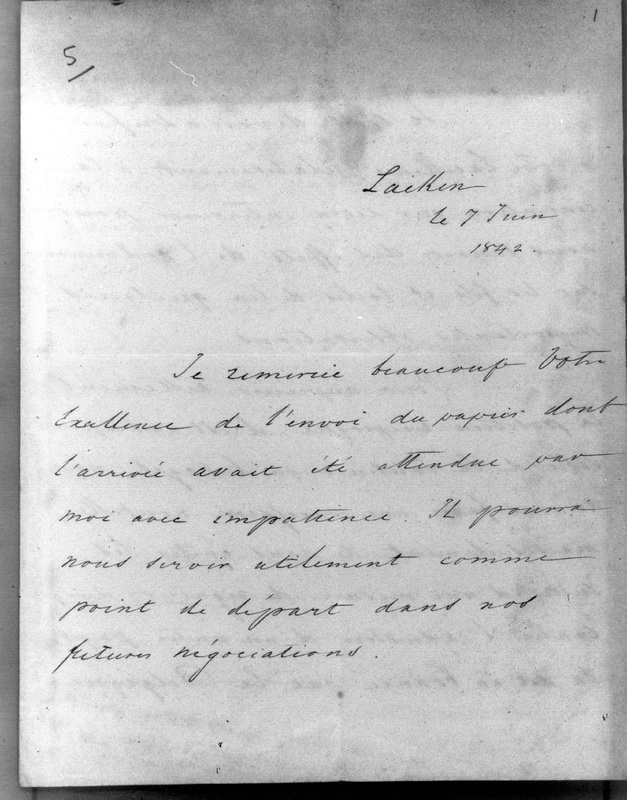 1
5/
Laeken
le 7 Juin
1842
Je remercie beaucoup Votre
Exellence de l'envoi du papier dont
l'arrivée avait été attendue par
moi avec impatience. Il pourra
nous servir utilement comme
point de depart dans nos
futures négociations.